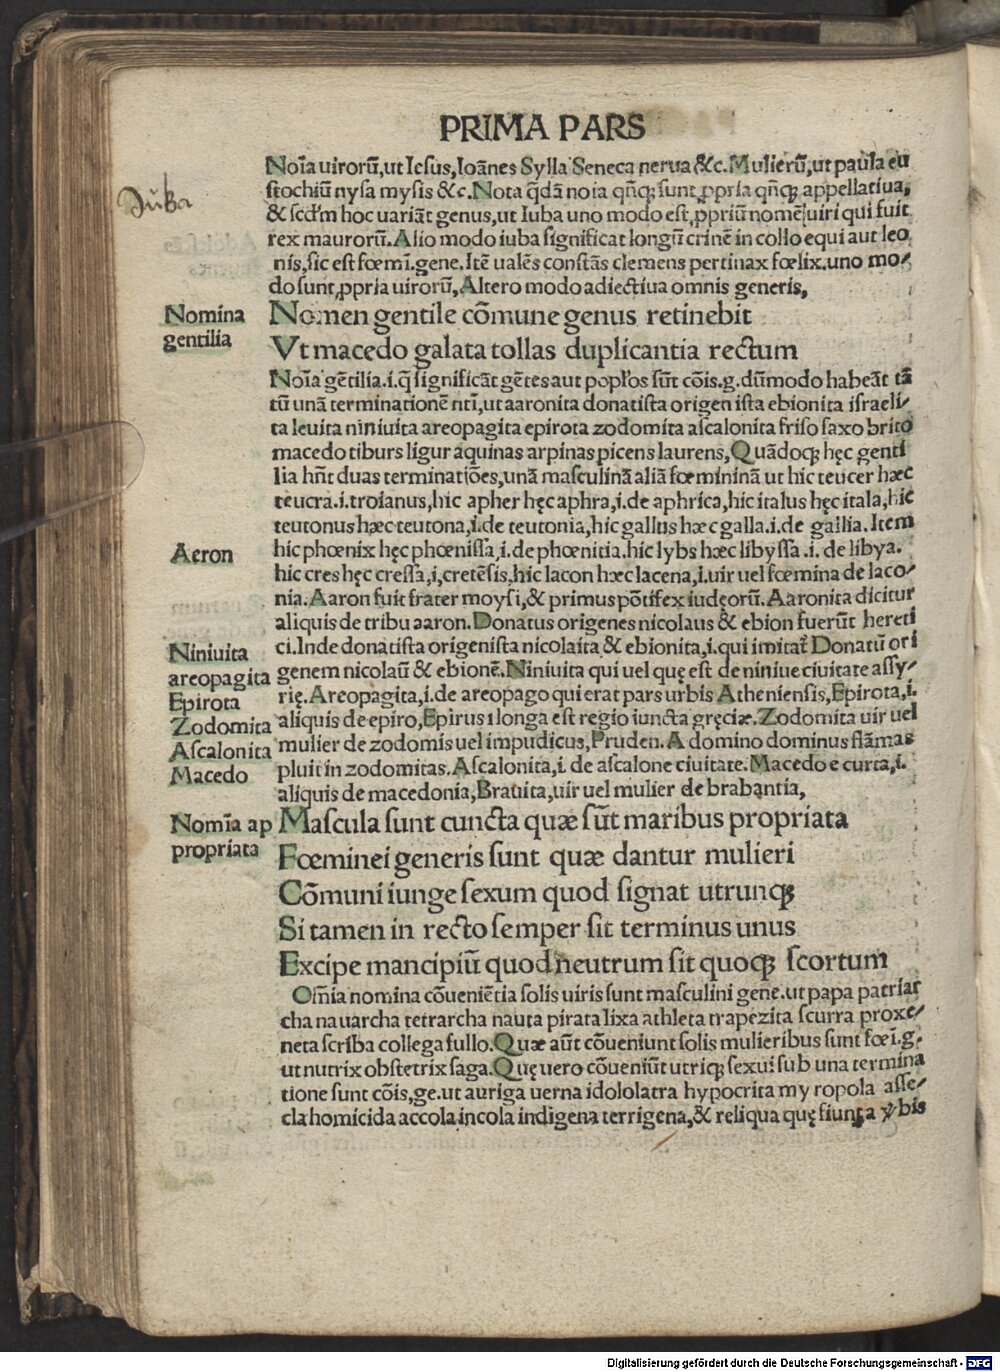 PRIMA PARS
Noĩa uirorũ,ut Iesus,Ioãnes Sylla Seneca nerua &c.Mulierũ,ut paula eu
stochiũ nysa mysis &c.Nota q̃dã noia qñq; sunt ꝓpria qñq; appellatiua,
& scďm hoc uariãt genus,ut Iuba uno modo est ꝓpriũ nomẽ uiri qui fuit
Juba
rex maurorũ.Alio modo iuba significat longũ crinẽ in collo equi aut leo
nis,sic est fœmĩ.gene.Itẽ ualẽs constãs clemens pertinax fœlix.uno mo/
do sunt ꝓpria uirorũ,Altero modo adiectiua omnis generis,
Nomina
gentilia
Nomen gentile cõmune genus retinebit
Vt macedo galata tollas duplicantia rectum
Noĩa gẽtilia.i.q̃ significãt gẽtes aut popľos sũt cõis.g.dũmodo habeãt tã
tũ unã terminationẽ ntĩ,ut aaronita donatista origenista ebionita israeli/
ta leuita niniuita areopagita epirota zodomita ascalonita friso saxo brito
macedo tiburs ligur aquinas arpinas picens laurens,Quãdoq; hęc genti
lia hñt duas terminatiões,unã masculinã aliã fœmininã ut hic teucer hæc
teucra.i.troianus,hic apher hęc aphra,i.de aphrica,hic italus hęc itala,hic
teutonus hæc teutona,i.de teutonia,hic gallus hæc galla.i.de gallia.Item
Aeron
hic phœnix hęc phœnissa,i.de phœnitia.hic lybs hæc libyssa .i. de libya.
hic cres hęc cressa,i,cretẽsis,hic lacon hæc lacena,i.uir uel fœmina de laco/
nia.Aaron fuit frater moysi,& primus põtifex iudęorũ.Aaronita dicitur
aliquis de tribu aaron.Donatus origenes nicolaus & ebion fuerũt hereti
ci.Inde donatista origenista nicolaita & ebionita,i.qui imitat᷑ Donatũ ori
Niniuita
areopagita
Epirota
Zodomita
Ascalonita
Macedo
genem nicolaũ & ebionẽ.Niniuita qui uel quę est de niniue ciuitate assy/
rię.Areopagita,i.de areopago qui erat pars urbis Atheniensis,Epirota,i.
aliquis de epiro,Epirus i longa est regio iuncta gręciæ.Zodomita uir uel
mulier de zodomis uel impudicus,Pruden.A domino dominus flãmas
pluit in zodomitas.Ascalonita,i. de ascalone ciuitate.Macedo e curta,i.
aliquis de macedonia,Brauita,uir uel mulier de brabantia,
Nomĩa ap
propriata
Mascula sunt cuncta quæ sũt maribus propriata
Fœminei generis sunt quæ dantur mulieri
Cõmuni iunge sexum quod signat utrunq;
Si tamen in recto semper sit terminus unus
Excipe mancipiũ quod neutrum sit quoq; scortum
Om̃ia nomina cõueniẽtia solis uiris sunt masculini gene.ut papa patriar
cha nauarcha tetrarcha nauta pirata lixa athleta trapezita scurra proxe/
neta scriba collega fullo.Quæ aũt cõueniunt solis mulieribus sunt fœĩ.g.
ut nutrix obstetrix saga.Quę uero cõueniũt utriq; sexui sub una termina
tione sunt cõis,ge.ut auriga uerna idololatra hypocrita myropola asse/
cla homicida accola incola indigena terrigena,& reliqua quę fiunt a ỹbis
Digitalisierung gefördert durch die Deutsche Forschungsgemeinschaft - DFG